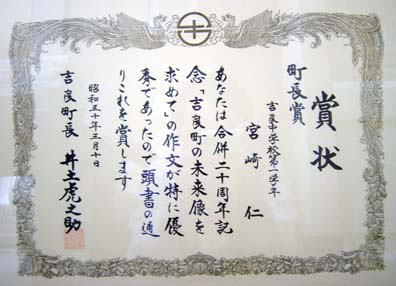 賞状
町長賞
吉良中学校第一学年
宮崎仁
あなたは合併二十周年記
念「吉良町の未来像を
求めて」の作文が特に優
秀であったので頭書の通
りこれを賞します
昭和五十年三月十日
吉良町長 井土虎之助